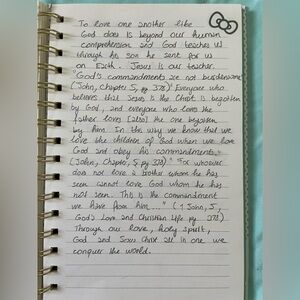 To love one another like
God does is beyond our human
comprehension and God teaches us
through his son he sent for us
on Earth. Jesus is our teacher.
"God's commandments are not burdensome"
(John, Chapter 5, pg 378)" Everyone who
believes that Jesus is the Christ is begotten
by God, and everyone who loves the
father loves [also] the one begotten
by him. In this way we know that we
love the children of God when we love
God and obey his commandments."
(John, Chapter 5, pg 378) "For whoever
does not love a brother whom he has
seen cannot love God whom he has
not seen. This is the commandment
we have from him..." (1 John, 5,
God's Love and Christian Life pg 378)
Through our love, holy spirit,
God and Jesus Christ all in one we
conquer the world.